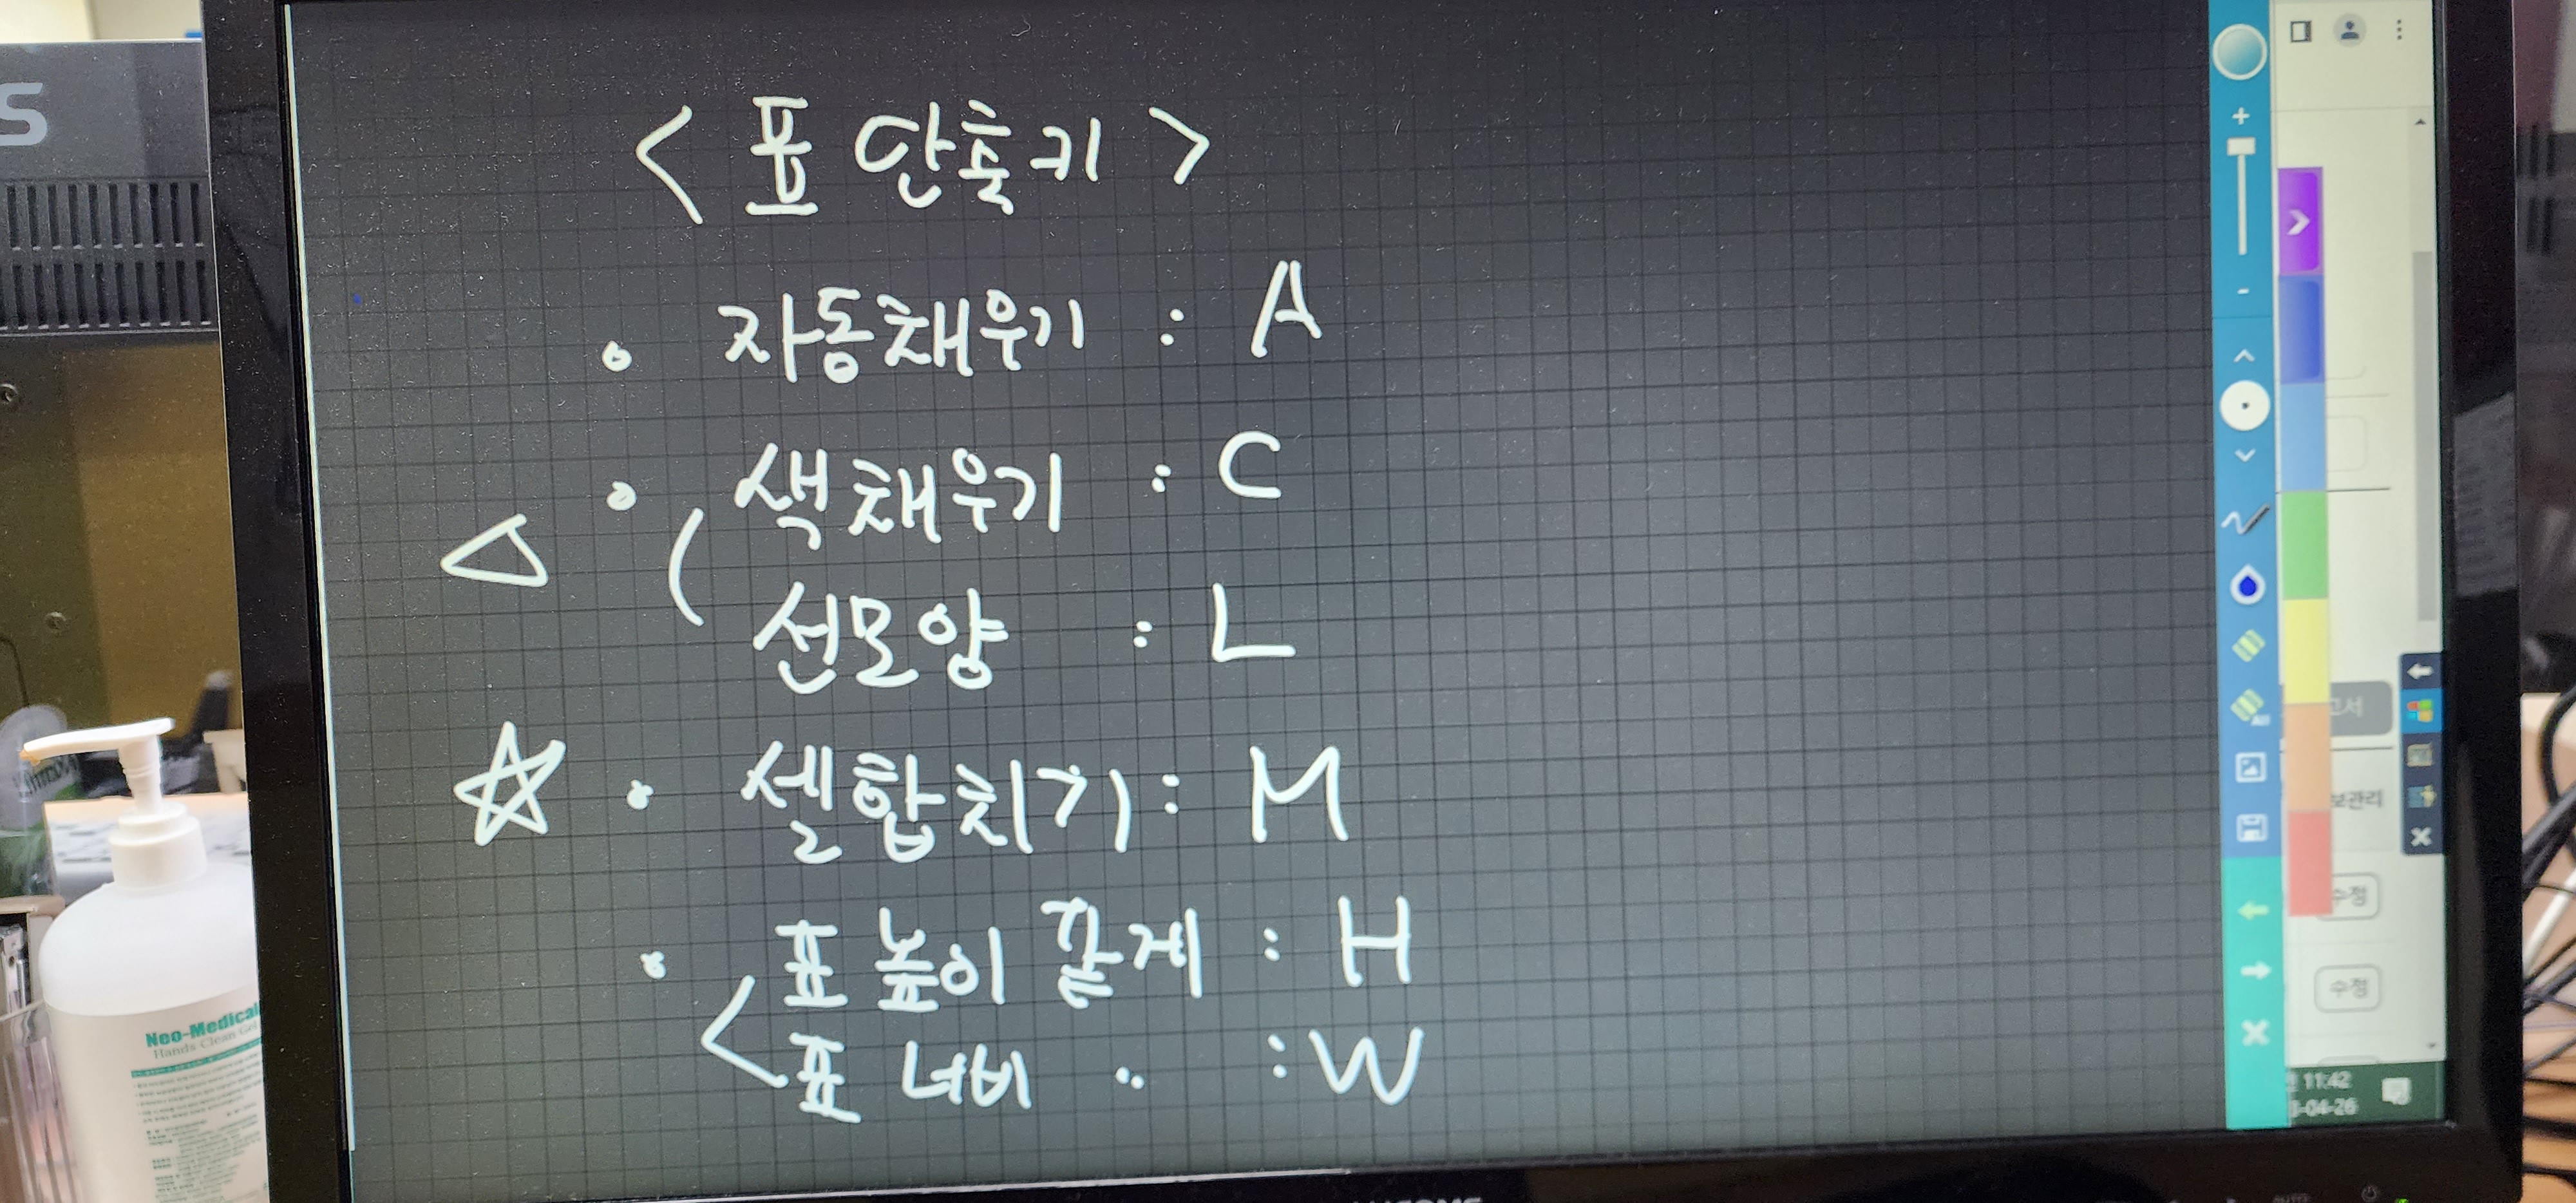 S
< 표 단축키 >
• 자동채우기 : A
• 색채우기 : C
선모양 : L
☆ • 셀합치기 : M
• 표 높이 같게 : H
표 너비 〃 : W
보관리
수정
수정
11:42
-04-26
Neo-Medical
Hands Clean Gel
All
AUTO